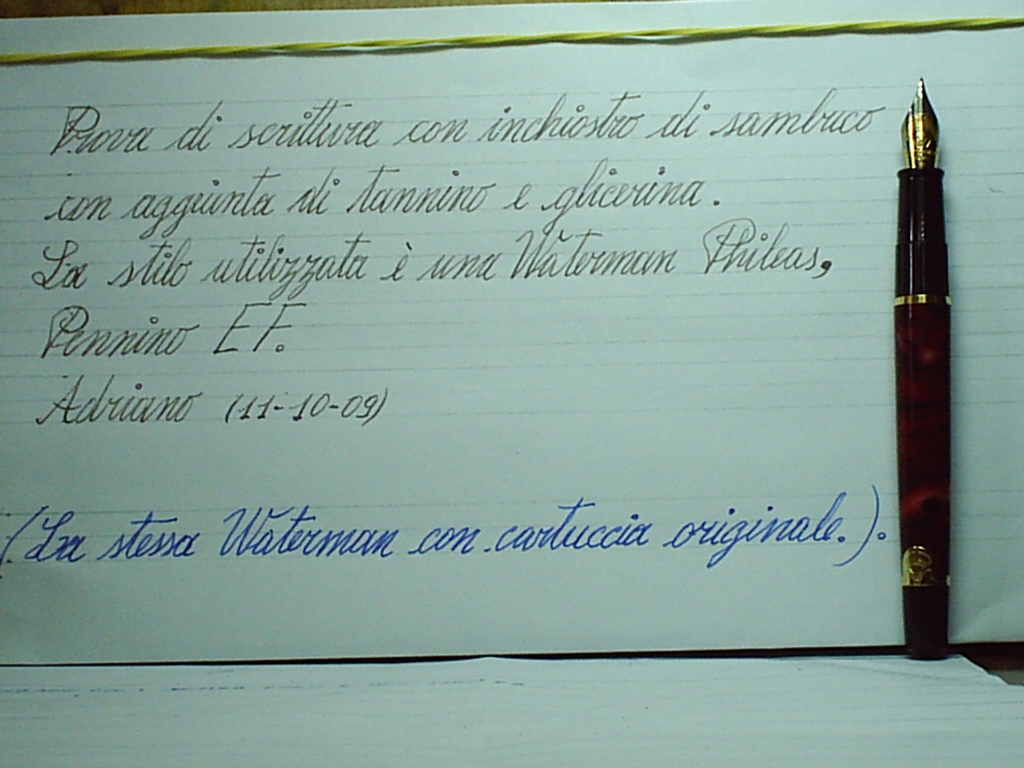 Prova di scrittura con inchiostro di sambuco
con aggiunta di tannino e glicerina.
La stilo utilizzata è una Waterman Phileas,
Pennino EF.
Adriano (11-10-09)
(La stessa Waterman con cartuccia originale.).